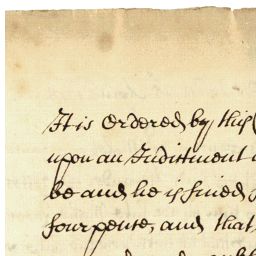 It is Ordered by this
upon an Indittment
be and he is fined
fourpence, and that